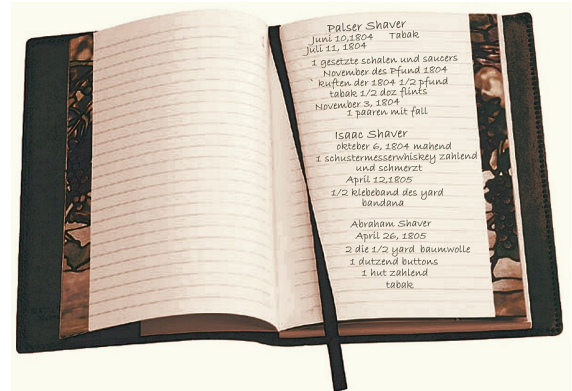 Palser Shaver
Juni 10,1804 Tabak
Juli 11, 1804
1 gesetzte schalen und saucers
November des Pfund 1804
` kuften der 1804 1/2 pfund
tabak 1/2 doz flints
November 3, 1804
1 paaren mit fall
Isaac Shaver
oktober 6, 1804 mahend
1 schustermesserwhiskey zahlend
und schmerzt
April 12,1805
1/2 klebeband des yard
bandana
Abraham Shaver
April 26, 1805
2 die 1/2 yard baumwolle
1 dutzend buttons
1 hut zahlend
tabak